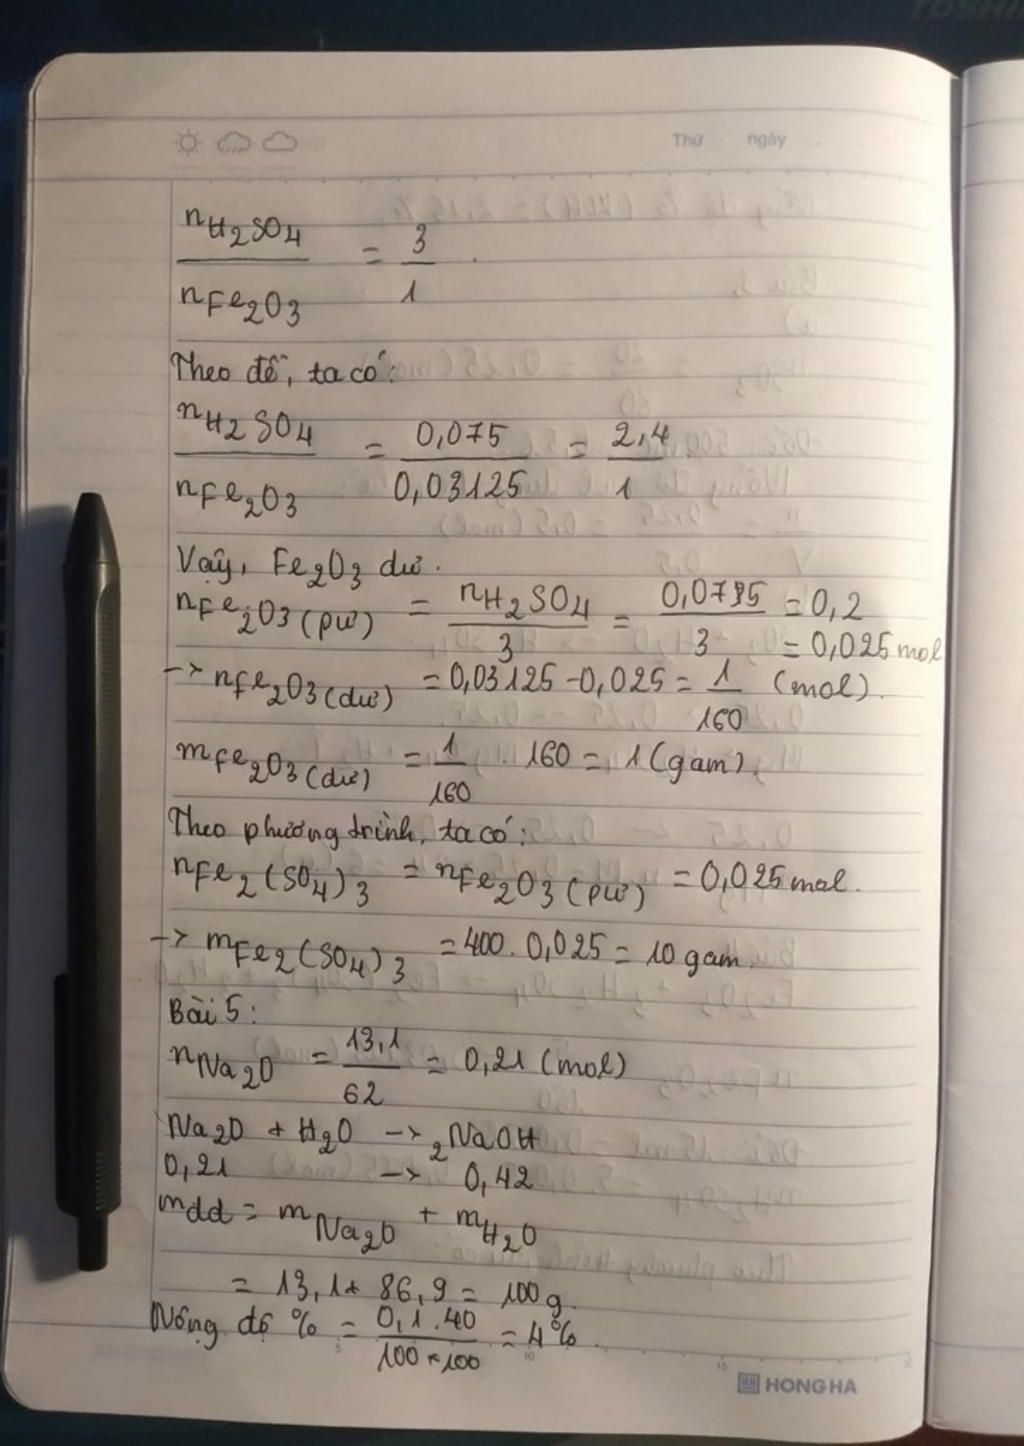 TOSHI
Thứ ngày
nH2SO4 / nFe2O3 = 3/1
Theo đề, ta có:
nH2SO4 / nFe2O3 = 0,075/0,03125 = 2,4/1
Vậy, Fe2O3 dư.
nFe2O3(pư) = nH2SO4/3 = /3 = 0,2
= 0,025 mol
-> nFe2O3(dư) = 0,03125 - 0,025 = 1/160 (mol).
mFe2O3(dư) = 1/160 . 160 = 1 (gam).
Theo phương trình, ta có:
nFe2(SO4)3 = nFe2O3(pư) = 0,025 mol.
-> mFe2(SO4)3 = 400. 0,025 = 10 gam.
Bài 5:
nNa2O = 13,1/62 = 0,21 (mol)
Na2O + H2O -> 2NaOH
0,21 -> 0,42
mdd = mNa2O + mH2O
= 13,1 + 86,9 = 100g.
Nồng độ % = 0,1.40/100 × 100 = 4%
HONG HA